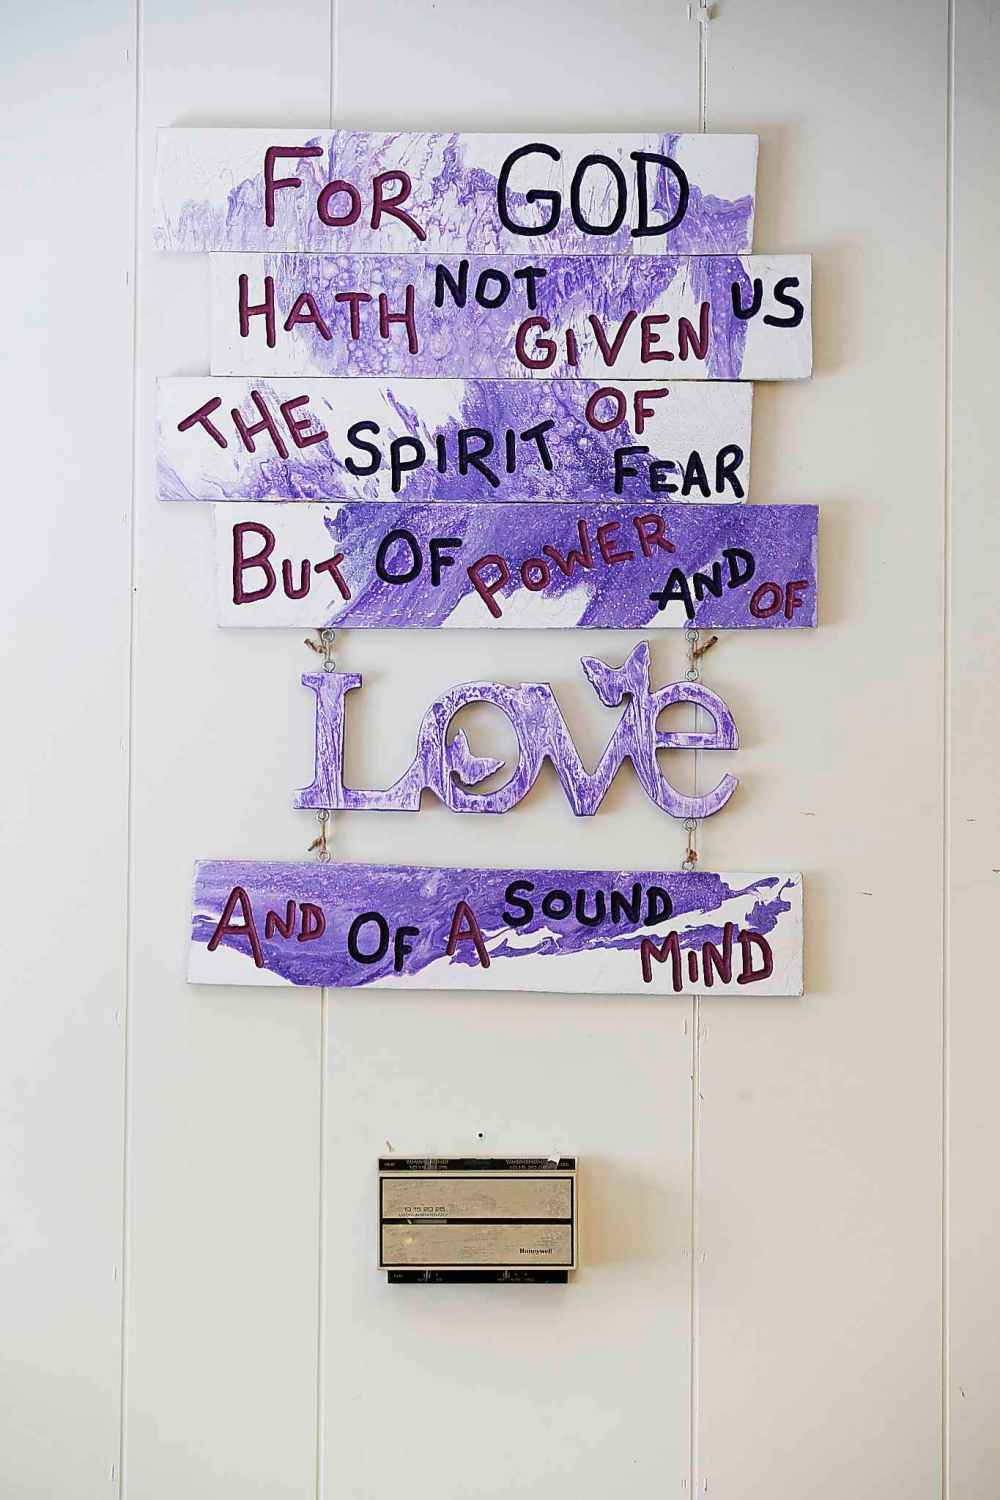 FOR GOD
HATH NOT GIVEN US
THE SPIRIT OF FEAR
BUT OF POWER AND OF
Love
AND OF A SOUND MIND
10 15 20 25
Honeywell